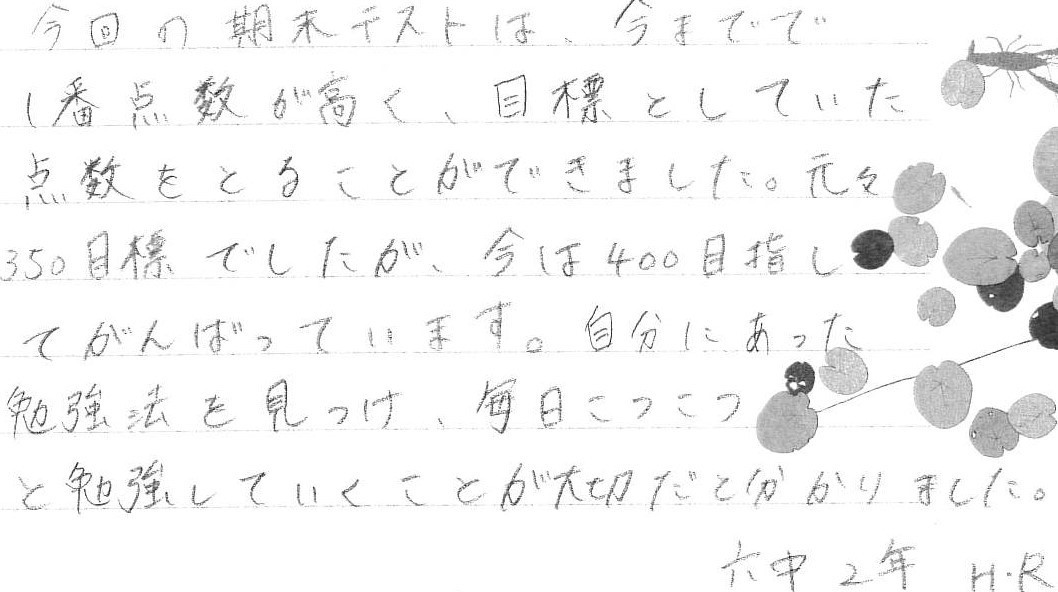 今回の期末テストは、今までで
1番点数が高く、目標としていた
点数をとることができました。元々
350目標でしたが、今は400目指し
てがんばっています。自分にあった
勉強法を見つけ、毎日こつこつ
と勉強していくことが大切だと分かりました。
六中2年 H・R